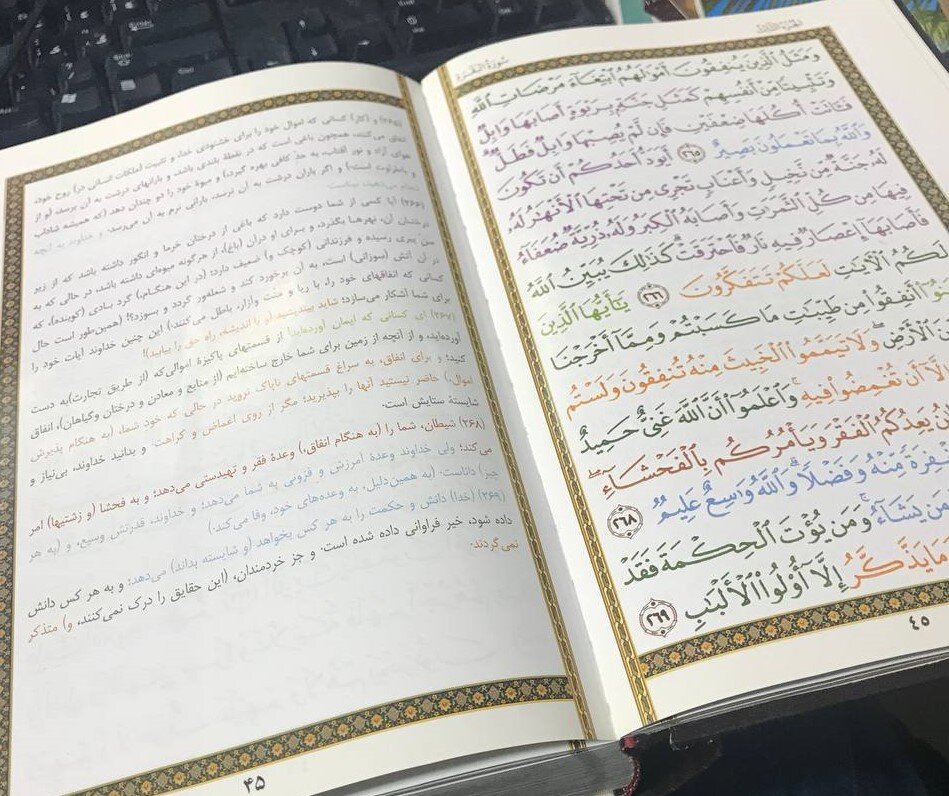 سورة البقرة
الجزء الثالث
وَمَثَلُ الَّذِينَ يُنفِقُونَ أَمْوَالَهُمُ ابْتِغَاءَ مَرْضَاتِ اللَّهِ
وَتَثْبِيتًا مِنْ أَنفُسِهِمْ كَمَثَلِ جَنَّةٍ بِرَبْوَةٍ أَصَابَهَا وَابِلٌ
فَآتَتْ أُكُلَهَا ضِعْفَيْنِ فَإِن لَمْ يُصِبْهَا وَابِلٌ فَطَلٌّ
وَاللَّهُ بِمَا تَعْمَلُونَ بَصِيرٌ ٢٦٥ أَيَوَدُّ أَحَدُكُمْ أَن تَكُونَ
لَهُ جَنَّةٌ مِن نَخِيلٍ وَأَعْنَابٍ تَجْرِي مِن تَحْتِهَا الْأَنْهَارُ لَهُ
فِيهَا مِن كُلِّ الثَّمَرَاتِ وَأَصَابَهُ الْكِبَرُ وَلَهُ ذُرِّيَّةٌ ضُعَفَاءُ
فَأَصَابَهَا إِعْصَارٌ فِيهِ نَارٌ فَاحْتَرَقَتْ كَذَلِكَ يُبَيِّنُ اللَّهُ
لَكُمُ الْآيَاتِ لَعَلَّكُمْ تَتَفَكَّرُونَ ٢٦٦ يَا أَيُّهَا الَّذِينَ
أَنفِقُوا مِن طَيِّبَاتِ مَا كَسَبْتُمْ وَمِمَّا أَخْرَجْنَا
الْأَرْضِ وَلَا تَيَمَّمُوا الْخَبِيثَ مِنْهُ تُنفِقُونَ وَلَسْتُم
إِلَّا أَن تُغْمِضُوا فِيهِ وَاعْلَمُوا أَنَّ اللَّهَ غَنِيٌّ حَمِيدٌ
يَعِدُكُمُ الْفَقْرَ وَيَأْمُرُكُم بِالْفَحْشَاءِ
مِنْهُ وَفَضْلًا وَاللَّهُ وَاسِعٌ عَلِيمٌ ٢٦٨
مَن يَشَاءُ وَمَن يُؤْتَ الْحِكْمَةَ فَقَدْ
مَا يَذَّكَّرُ إِلَّا أُولُوا الْأَلْبَابِ ٢٦٩
٤٥
(۲۶۵) و (کار) کسانی که اموال خود را برای خشنودی خدا، و تثبیت (ملکات انسانی در) روح خود،
انفاق می‌کنند، همچون باغی است که در نقطهٔ بلندی باشد، و بارانهای درشت به آن برسد، (و از
هوای آزاد و نور آفتاب، به حد کافی بهره گیرد،) و میوهٔ خود را دو چندان دهد (که همیشه شاداب
و باطراوت است.) و اگر باران درشت به آن نرسد، بارانی نرم به آن می‌رسد. و خداوند به آنچه
انجام می‌دهید، بیناست.
(۲۶۶) آیا کسی از شما دوست دارد که باغی از درختان خرما و انگور داشته باشد که از زیر
درختان آن، نهرها بگذرد، و برای او در آن (باغ)، از هرگونه میوه‌ای باشد، در حالی که به
سن پیری رسیده و فرزندانی (کوچک و) ضعیف دارد؛ (در این هنگام،) گرد بادی (کوبنده)، که
در آن آتش (سوزانی) است، به آن برخورد کند و شعله‌ور گردد و بسوزد؟! (همین‌طور است حال
کسانی که انفاقهای خود را، با ریا و منت و آزار، باطل می‌کنند.) این چنین خداوند آیات خود را
برای شما آشکار می‌سازد؛ شاید بیندیشید (و با اندیشه، راه حق را بیابید)!
(۲۶۷) ای کسانی که ایمان آورده‌اید! از قسمتهای پاکیزهٔ اموالی که (از طریق تجارت) به دست
آورده‌اید، و از آنچه از زمین برای شما خارج ساخته‌ایم (از منابع و معادن و درختان و گیاهان)، انفاق
کنید؛ و برای انفاق، به سراغ قسمتهای ناپاک نروید در حالی که خود شما، (به هنگام پذیرش
اموال،) حاضر نیستید آنها را بپذیرید؛ مگر از روی اغماض و کراهت؛ و بدانید خداوند، بی‌نیاز و
شایستهٔ ستایش است.
(۲۶۸) شیطان، شما را (به هنگام انفاق،) وعدهٔ فقر و تهیدستی می‌دهد؛ و به فحشا (و زشتیها) امر
می‌کند؛ ولی خداوند وعدهٔ آمرزش و فزونی به شما می‌دهد؛ و خداوند، قدرتش وسیع، و (به هر
چیز) داناست. (به همین‌دلیل، به وعده‌های خود، وفا می‌کند.)
(۲۶۹) (خدا) دانش و حکمت را به هر کس بخواهد (و شایسته بداند) می‌دهد؛ و به هر کس دانش
داده شود، خیر فراوانی داده شده است. و جز خردمندان، (این حقایق را درک نمی‌کنند، و) متذکر
نمی‌گردند.
۴۵